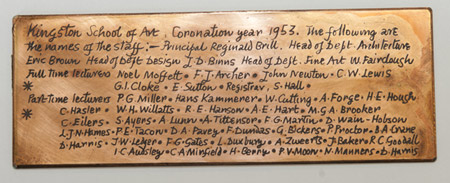 Kingston School of Art, Coronation year 1953. The following are
the names of the staff:— Principal Reginald Brill, Head of Dept. Architecture
Eric Brown Head of Dept Design J.D. Binns Head of Dept. Fine Art W. Fairclough
Full time lecturers Noel Moffett • F.J. Archer • John Newton • C.W. Lewis
* G.I. Cloke • E. Sutton • Registrar, S. Hall •
Part-time lecturers P.G. Miller • Hans Kammerer • W. Cutting • A. Forge • H.E. Hough
* C. Hasler • W.H. Willatts • R.E. Hanson • A.E. Hart • M.G.A. Brooker
C. Eilers • S. Ayers • A. Lunn • A. Tittensor • F.G. Martin • D. Wain-Hobson
L.J.N. Hames • P.E. Tacon • D.A. Pavey • F. Dundas • G. Bickers • P. Proctor • D.A. Crane
D. Harris • J.W. Ledger • F.G. Gates • L. Duxbury • A. Zweerts • J. Baker • R.C. Goodall
I.C. Audsley • C.A. Minfield • H. Berry • P.V. Moon • N. Manners • D. Harris